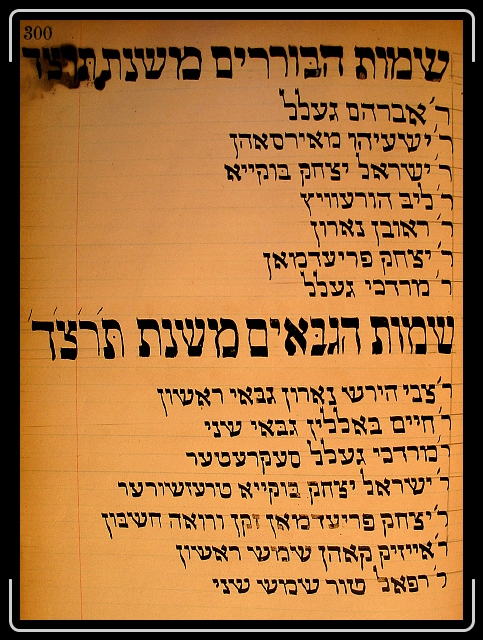 300
שמות הבוררים משנת תרצד
ר' אברהם געלל
ר' ישעיהו מאירסאהן
ר' ישראל יצחק בוקייא
ר' ליב הורעוויץ
ר' ראובן נארון
ר' יצחק פריעדמאן
ר' מרדכי געלל
שמות הגבאים משנת תרצד
ר' צבי הירש נארון גבאי ראשיון
ר' חיים באללין גבאי שני
ר' מרדכי געלל סעקרעטער
ר' ישראל יצחק בוקייא טרעזשורער
ר' יצחק פריעדמאן זקן ורואה חשבון
ר' אייזיק קאהן שימש ראשיון
ר' רפאל טור שימש שני